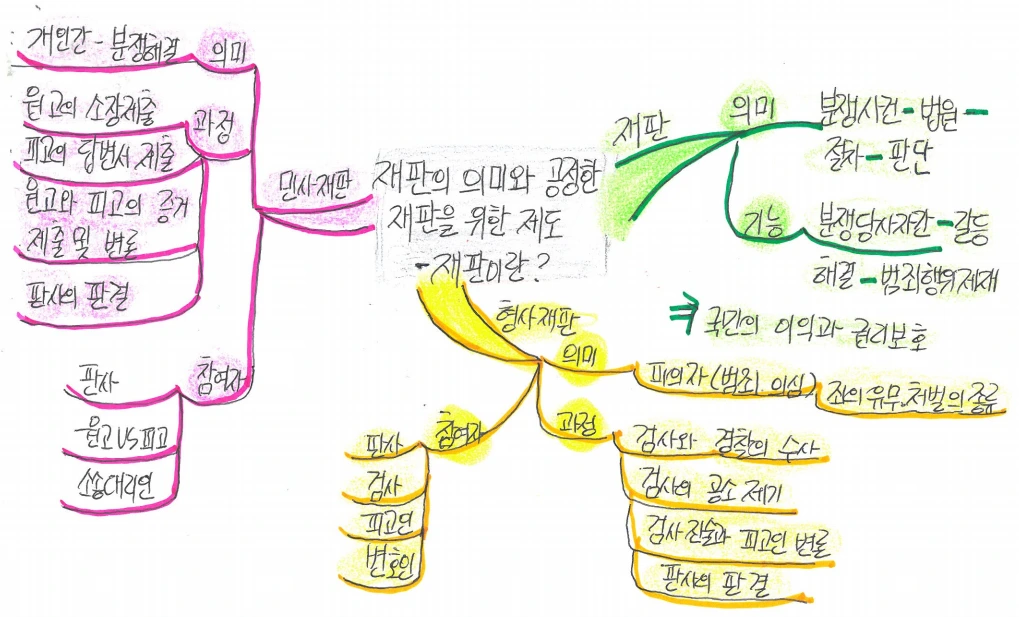 재판의 의미와 공정한
재판을 위한 제도
- 재판이란?
재판
의미
분쟁사건 - 법원 -
절차 - 판단
기능
분쟁당사자간 - 갈등
해결 - 범죄행위제재
⇒ 국민의 이익과 권리보호
형사재판
의미
피의자(범죄 의심)
죄의 유무.처벌의 종류
과정
검사와 경찰의 수사
검사의 공소 제기
검사 진술과 피고인 변론
판사의 판결
참여자
판사
검사
피고인
변호인
민사재판
의미
개인간 - 분쟁해결
과정
원고의 소장제출
피고의 답변서 제출
원고와 피고의 증거
제출 및 변론
판사의 판결
참여자
판사
원고 VS 피고
소송대리인